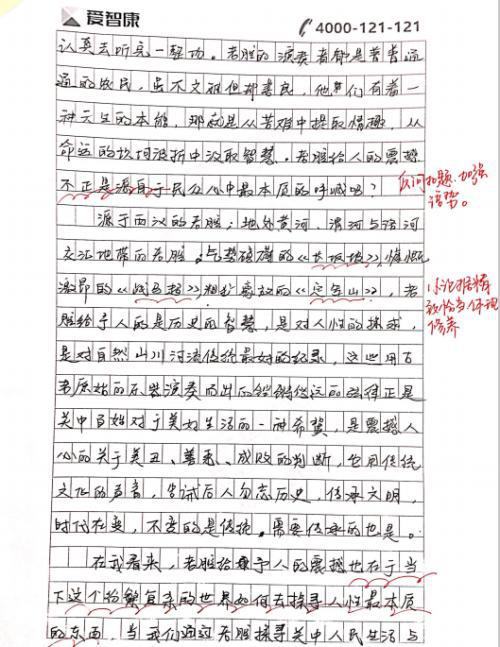 爱智康
4000-121-121
认真去听完一整场。老腔的演奏者都是普普通
通的农民,虽不文雅但却善良,他们有着一
种天生的本能,那就是从苦难中提取情趣,从
命运的坎坷波折中汲取智慧。老腔给人的震撼
不正是源自于民众心中最本质的呼喊吗?
反问扣题,加强
语势。
源于西汉的老腔;地处黄河、渭河与洛河
交汇地带的老腔。气势磅礴的《长坂坡》慷慨
激昂的《战马超》粗犷豪放的《定军山》,老
腔给予人的是历史的智慧,是对人性的探求,
是对自然山川河流传统最好的纪录,这些用古
老原始的乐器演奏而出的铿锵悠远的旋律正是
关中百姓对于美好生活的一种希冀,是震撼人
心的关于美丑、善恶、成败的判断,它用传统
文化的声音,告诫后人勿忘历史,传承文明,
时代在变,不变的是传统。需要传承的也是。
在我看来,老腔给予人的震撼也在于当
下这个纷繁复杂的世界如何去探寻人性最本质
的东西,当我们通过老腔探寻关中人民生活与